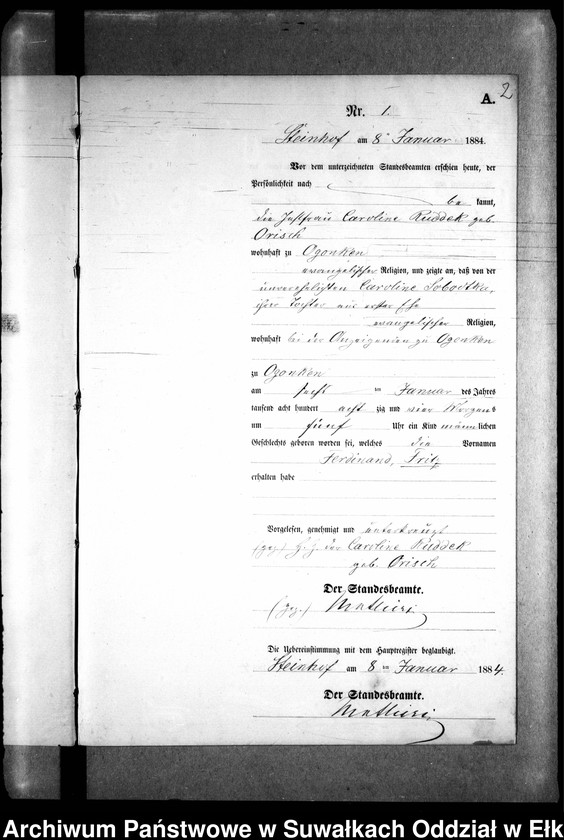 2
A.
Nr. 1.
Steinhof am 8t Januar 1884.
Vor dem unterzeichneten Standesbeamten erschien heute, der
Persönlichkeit nach
be kannt,
die Instfrau Caroline Ruddek geb.
Orisch
wohnhaft zu Ogonken
evangelischer Religion, und zeigte an, daß von der
unverehelichten Caroline Sobottka,
ihrer Tochter aus erster Ehe
evangelischer Religion,
wohnhaft bei der Anzeigenden zu Ogonken
zu Ogonken
am ten Januar des Jahres
tausend acht hundert acht zig und vier Morgens
um fünf Uhr ein Kind männ lichen
Geschlechts geboren worden sei, welches die Vornamen
Ferdinand, Fritz
erhalten habe
Vorgelesen, genehmigt und unterkreuzt
(gez.) der Caroline Ruddek
geb. Orisch
Der Standesbeamte.
(gez.)
Die Uebereinstimmung mit dem Hauptregister beglaubigt.
Steinhof am 8 ten Januar 1884.
Der Standesbeamte.
Archiwum Państwowe w Suwałkach Oddział w Ełk